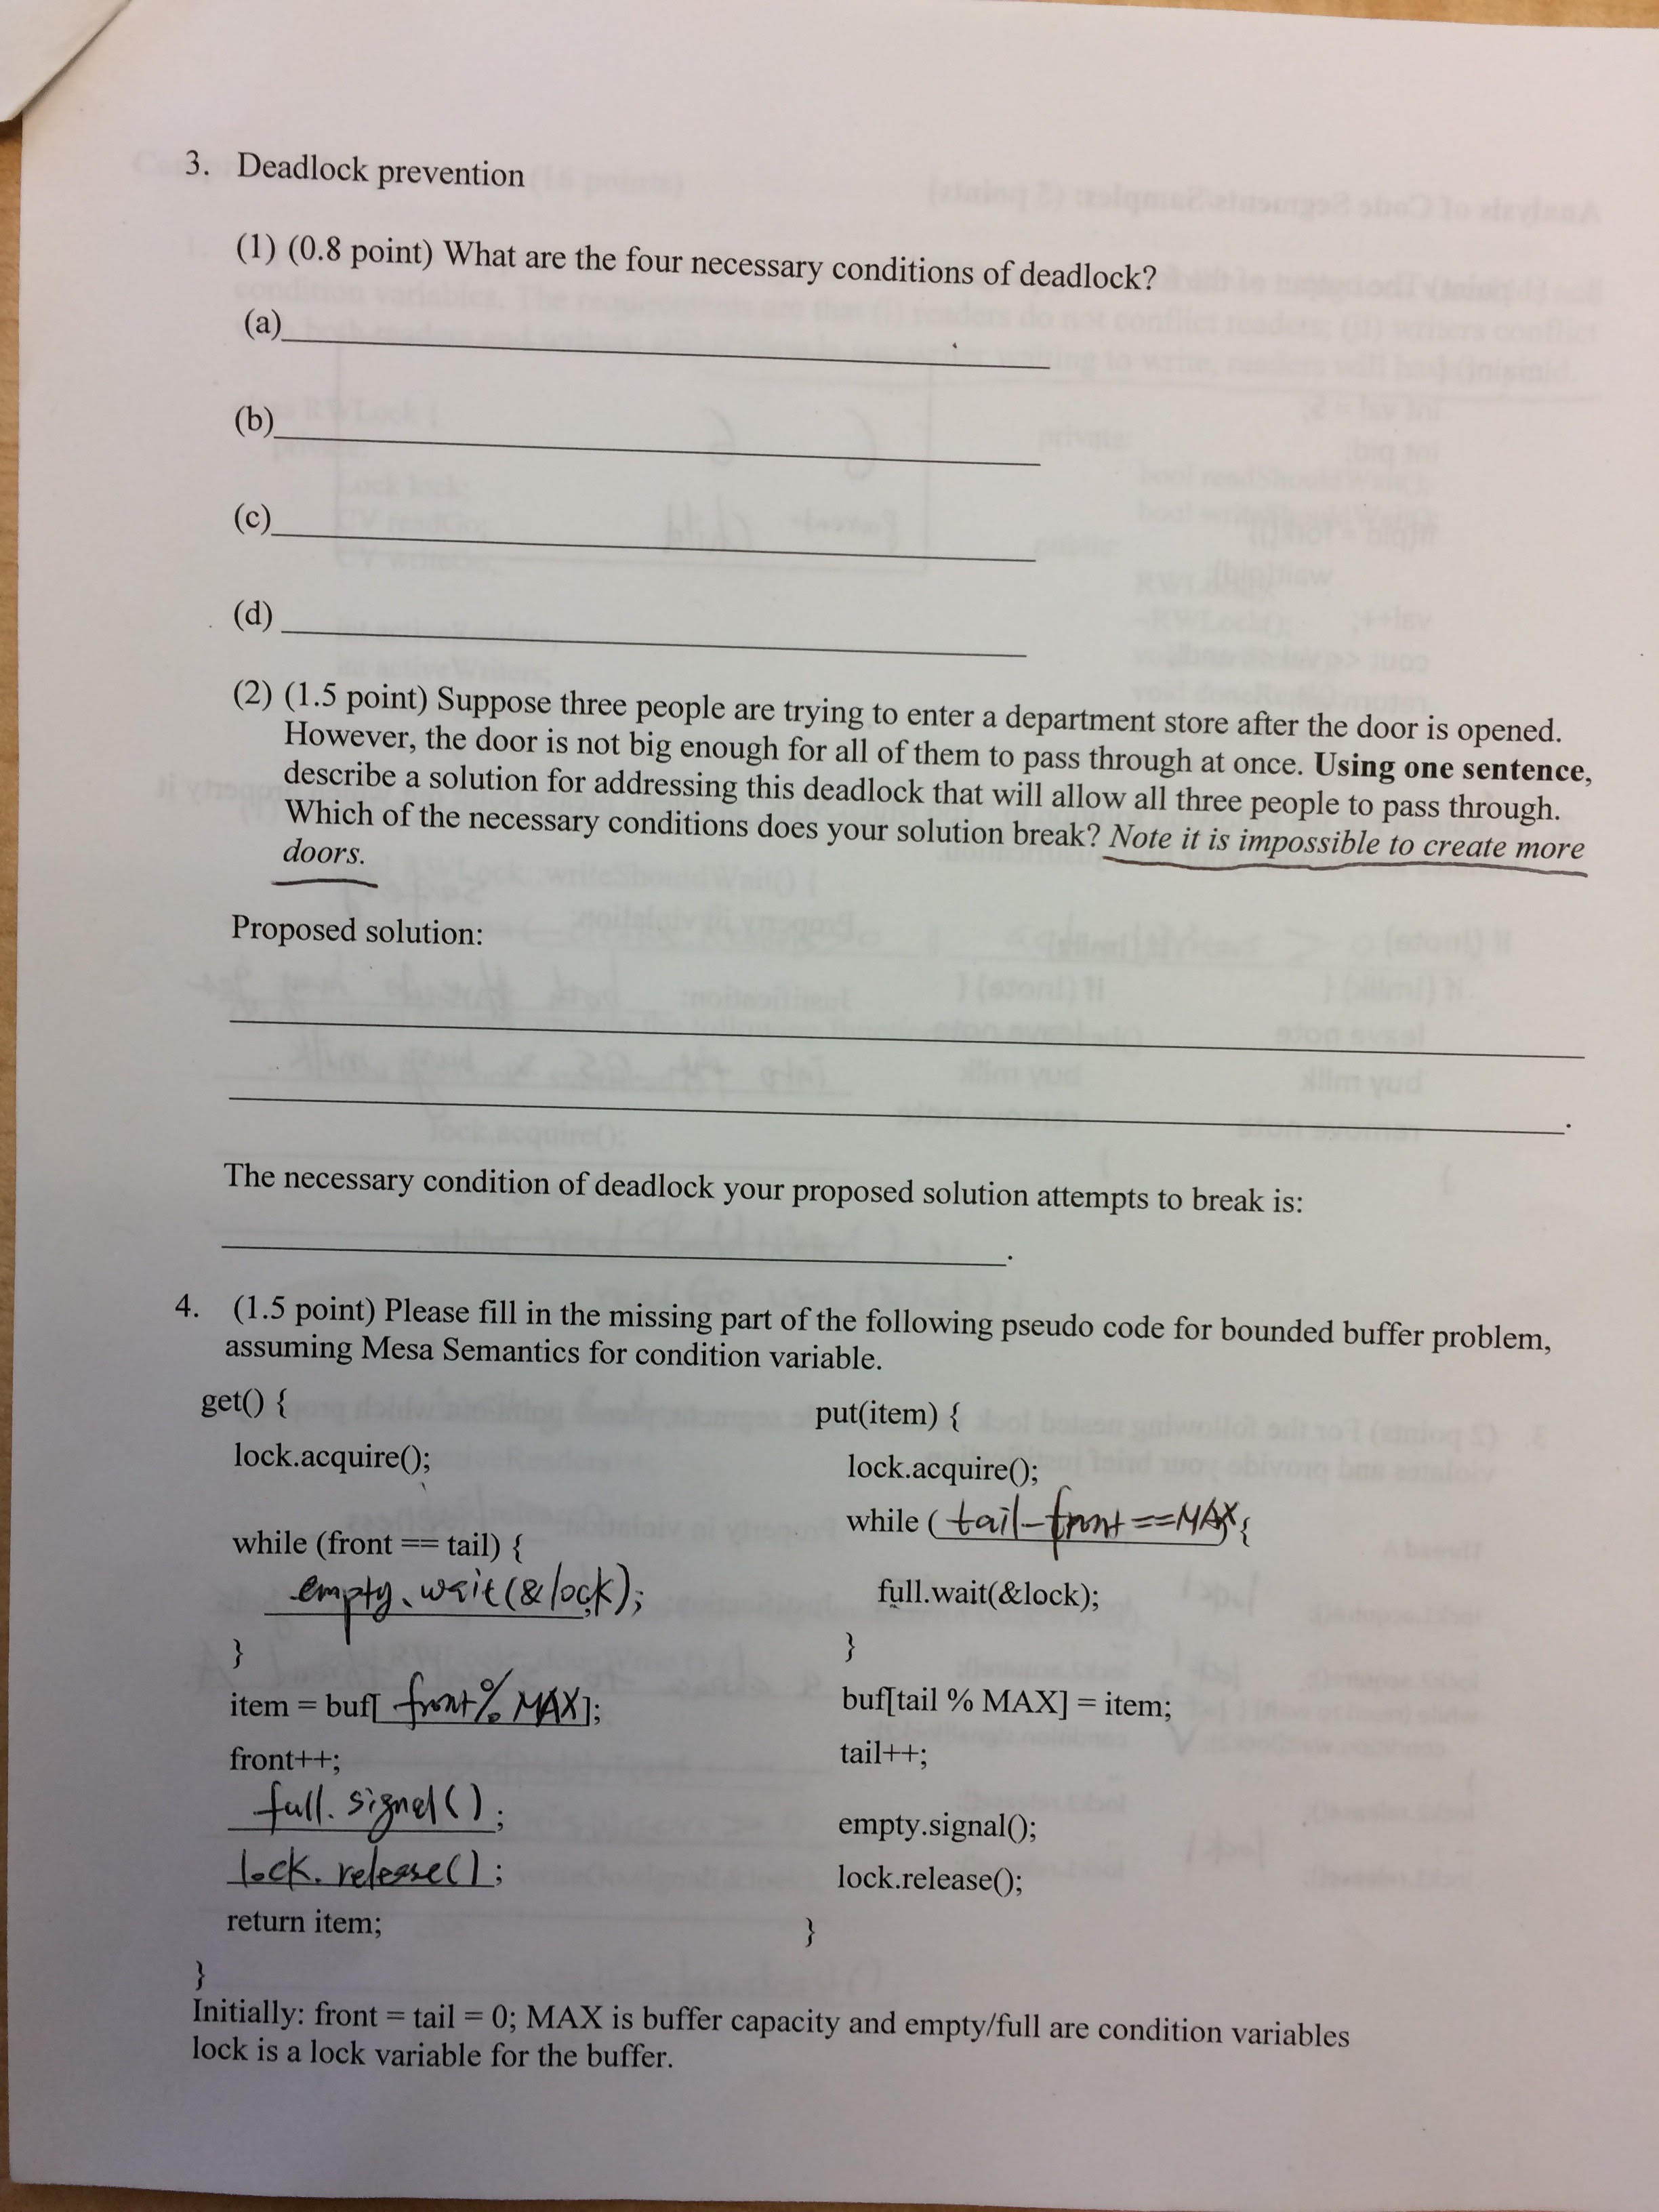 3. Deadlock prevention
(1) (0.8 point) What are the four necessary conditions of deadlock?
(a)
(b)
(c)
(d)
(2) (1.5 point) Suppose three people are trying to enter a department store after the door is opened.
However, the door is not big enough for all of them to pass through at once. Using one sentence,
describe a solution for addressing this deadlock that will allow all three people to pass through.
Which of the necessary conditions does your solution break? Note it is impossible to create more
doors.
Proposed solution:
.
The necessary condition of deadlock your proposed solution attempts to break is:
.
4. (1.5 point) Please fill in the missing part of the following pseudo code for bounded buffer problem,
assuming Mesa Semantics for condition variable.
get() {
lock.acquire();
while (front == tail) {
empty.wait(&lock);
}
item = buf[ front % MAX];
front++;
full.signal();
lock.release();
return item;
}
put(item) {
lock.acquire();
while ( tail-front==MAX{
full.wait(&lock);
}
buf[tail % MAX] = item;
tail++;
empty.signal();
lock.release();
}
Initially: front = tail = 0; MAX is buffer capacity and empty/full are condition variables
lock is a lock variable for the buffer.